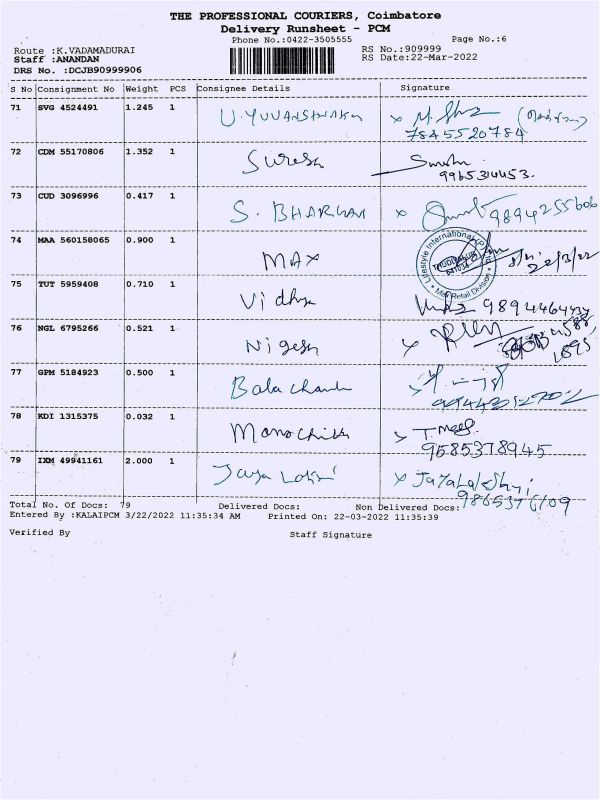 THE PROFESSIONAL COURIERS, Coimbatore
Delivery Runsheet - PCM
Phone No.:0422-3505555 Page No.:6
Route :K.VADAMADURAI RS No.:909999
Staff :ANANDAN RS Date:22-Mar-2022
DRS No. :DCJB90999906
S No Consignment No Weight PCS Consignee Details Signature
71 SVG 4524491 1.245 1
7845520784
72 CDM 55170806 1.352 1 Suresh
9965314453.
73 CUD 3096996 0.417 1 S. BHARKAV 9894255606
74 MAA 560158065 0.900 1 MAX 22/3/22
Lifestyle International (P) Ltd
Max Retail Division
75 TUT 5959408 0.710 1 Vidhya
76 NGL 6795266 0.521 1 Nigesh
77 GPM 5184923 0.500 1 Bala
78 KDI 1315375 0.032 1 T.
9585378945
79 IXM 49941161 2.000 1 Jaya
Total No. Of Docs: 79 Delivered Docs: Non Delivered Docs:
Entered By :KALAIPCM 3/22/2022 11:35:34 AM Printed On: 22-03-2022 11:35:39
Verified By Staff Signature